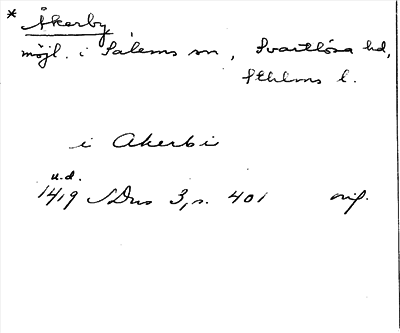 * Åkerby
möjl. i Salems sn, Svartlösa hd,
Sthlms l.
i Akerbi
u.d.
1419 SDns 3, s. 401 orig.